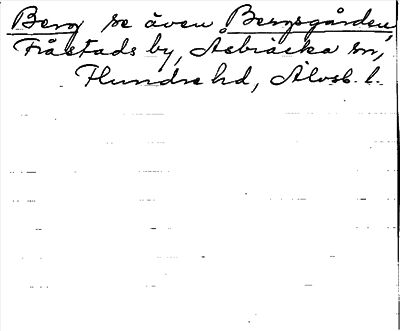 Berg se även Bergsgården
Fråstads by, Åsbräcka sn,
Flundre hd, Älvsb. l.